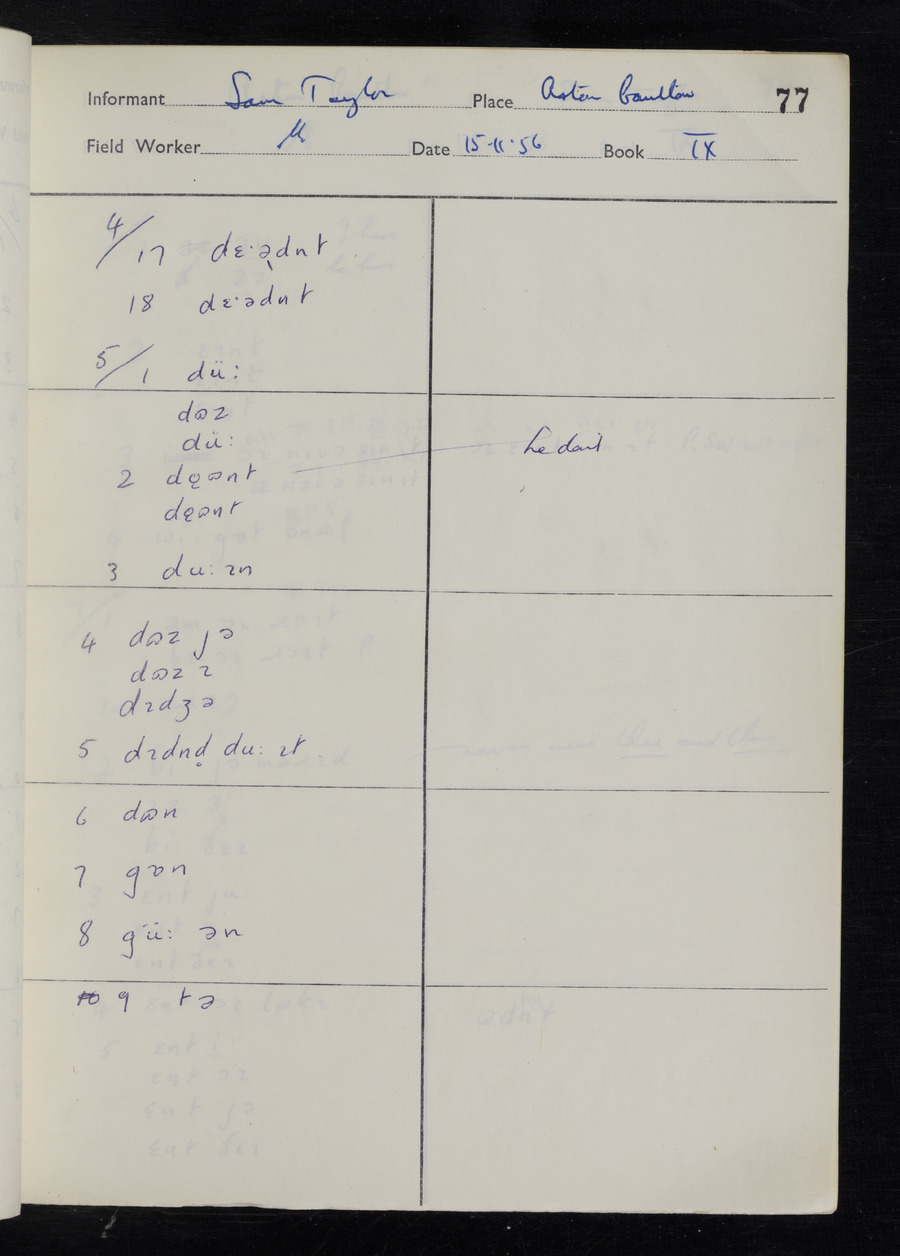 Informant Sam Taylor Place Aston Cantlow 77
Field Worker Date 15·11·56 Book IX
4/17 dɛ·ə̣dnt
18 dɛ·ədnt
5/1 dü:
dɷz
dü:
2 dęɷnt he don't
dęɷnt
3 du:ɪn
4 dɷz jə
dɷz ɪ
dɪdʒə
5 dɪdnd̥ du: ɪt
6 dɷn
7 gɒn
8 gü: ən
9 tə